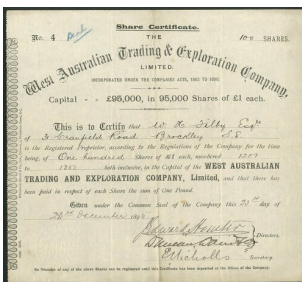 Share Certificate.
No. 4
THE
100 SHARES.
West Australian Trading & Exploration Company,
LIMITED.
INCORPORATED UNDER THE COMPANIES ACTS, 1862 TO 1890.
Capital - - £95,000, in 95,000 Shares of £1 each.
This is to Certify that W. H. Tilby Esqre
of 3 Road Brockley S.E.
is the Registered Proprietor, according to the Regulations of the Company for the time
being, of One hundred Shares of £1 each, numbered
to both inclusive, in the Capital of the WEST AUSTRALIAN
TRADING AND EXPLORATION COMPANY, Limited, and that there has
been paid in respect of each Share the sum of One Pound.
Given under the Common Seal of the Company this 28th day of
December
Edward
Directors.
Duncan
E Nicholls
Secretary.
No Transfer of any of the above Shares can be registered until this Certificate has been deposited at the Offices of the Company.